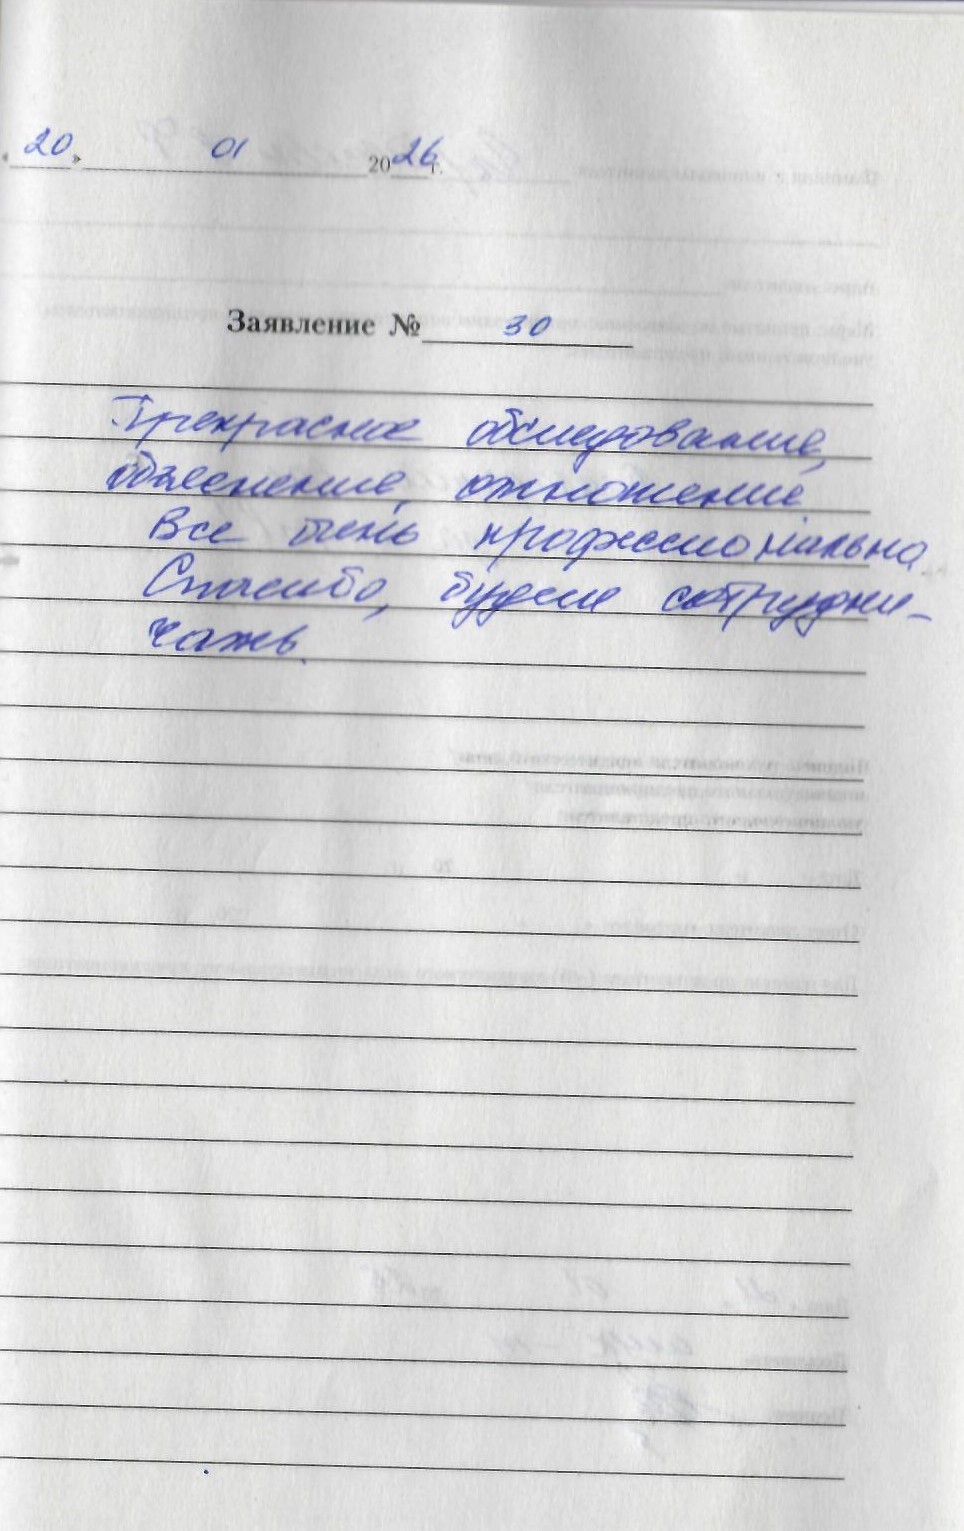 «20» 01 2026 г.
Заявление № 30
Прекрасное обследование,
объяснение, отношение.
Все очень профессионально.
Спасибо, будем сотрудни-
чать.